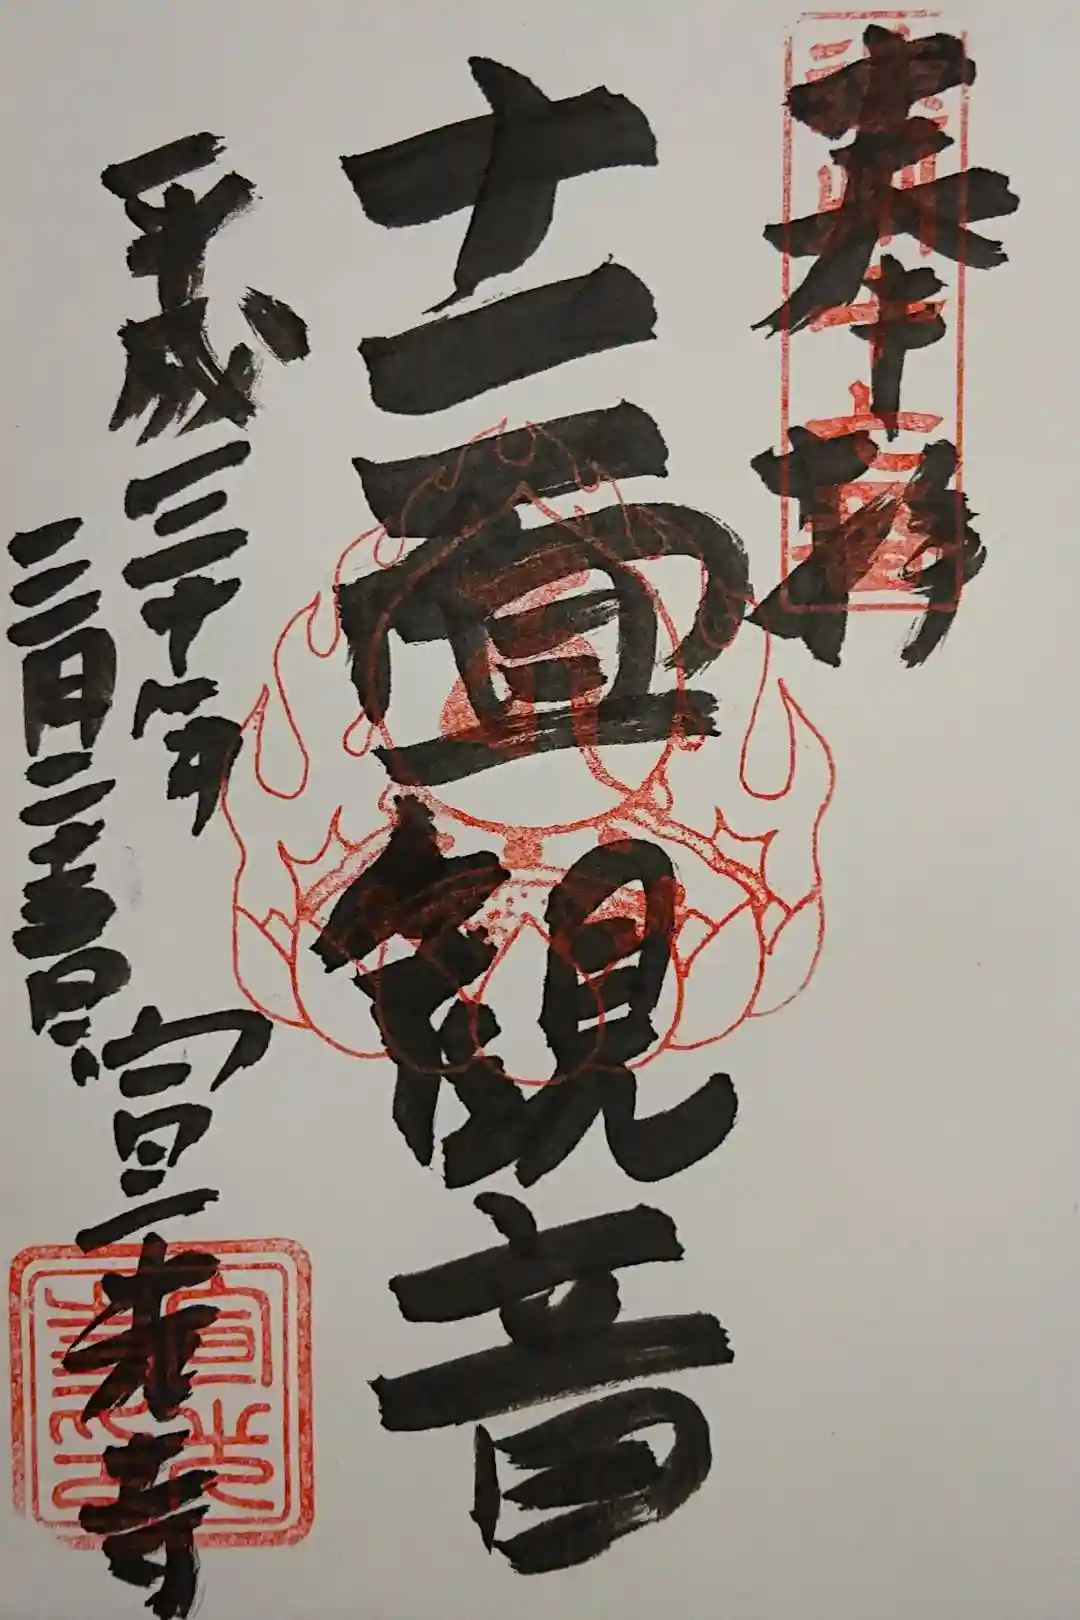 奉拝
十一面観音
平成三十年
三月二十五日
宣光寺